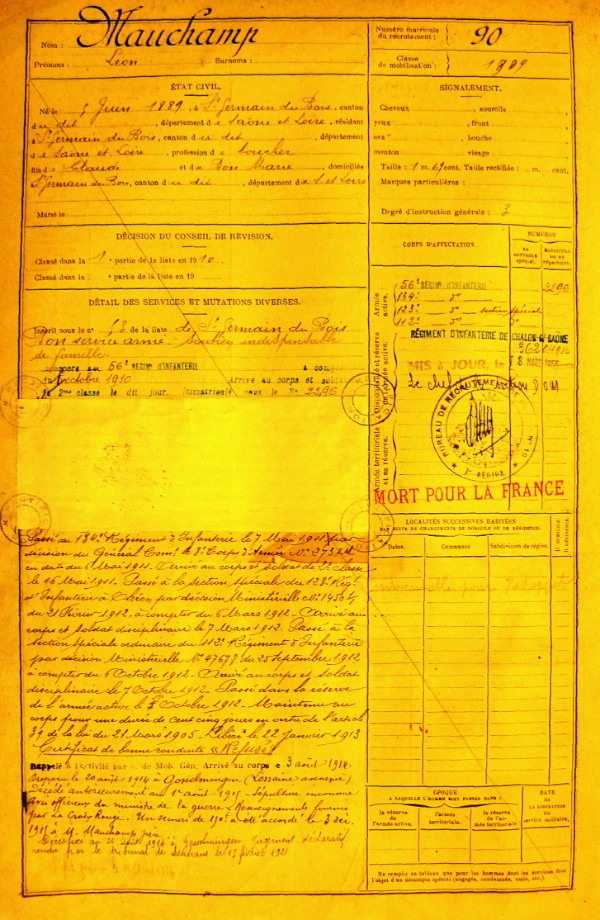 Nom : Mauchamp
Prénoms : Léon Surnoms :
Numéro matricule du recrutement : 90
Classe de mobilisation : 1909
ÉTAT CIVIL.
Né le 3 Juin 1889, à St Germain du Bois, canton
du dit, département de Saône et Loire, résidant
St Germain du Bois, canton du dit, département
de Saône et Loire, profession de boucher
fils de Claude et de Bon Marie, domiciliés
St Germain du Bois, canton du dit, département de S et Loire
Marié le
SIGNALEMENT.
Cheveux , sourcils
yeux , front
nez , bouche
menton , visage
Taille : 1 m. cent. Taille rectifiée : m. cent.
Marques particulières :
Degré d'instruction générale : 3
DÉCISION DU CONSEIL DE RÉVISION.
Classé dans la 1e partie de la liste en 1910
Classé dans la e partie de la liste en 19
DÉTAIL DES SERVICES ET MUTATIONS DIVERSES.
Inscrit sous le n° 12 de la liste de St Germain du Bois
Bon service armé. Soutien indispensable
de famille
Incorporé au 56e RÉGIMT D'INFANTERIE à compter
du octobre 1910 Arrivé au corps et soldat
de 2me classe le dit jour, immatriculé sous le N°
CORPS D'AFFECTATION.
NUMÉROS
Armée active.
56e RÉGIMT D'INFANTERIE
134e do
123e do section spéciale
112e do
Disponibilité et réserve de l'armée active.
RÉGIMENT D'INFANTERIE DE CHALON-s-SAONE
MIS A JOUR, le
8 MARS
BUREAU DE RECRUTEMENT
Armée territoriale et sa réserve.
MORT POUR LA FRANCE
LOCALITÉS SUCCESSIVES HABITÉES
PAR SUITE DE CHANGEMENTS DE DOMICILE OU DE RÉSIDENCE.
Dates. Communes. Subdivision de région. D. domicile. R. résidence.
Passé au 134e Régiment d'Infanterie le 7 Mai 1911 par
décision du Général Comt le Corps d'Armée N°
en date du Mai 1911. Arrivé au corps et soldat de 2e classe
le 16 Mai 1911. Passé à la section spéciale du 123e Régt
d'Infanterie à par décision Ministérielle N° 1450
du 21 Février 1912, à compter du 6 Mars 1912. Arrivé au
corps et soldat disciplinaire le 7 Mars 1912. Passé à la
section spéciale ordinaire du 112e Régiment d'Infanterie
par décision Ministérielle N° 4767 du 25 Septembre 1912
à compter du 6 Octobre 1912. Arrivé au corps et soldat
disciplinaire le 7 Octobre 1912. Passé dans la réserve
de l'armée active le 1er Octobre 1912. Maintenu au
corps pour une durée de cent cinq jours en vertu de l'article
39 de la loi du 21 Mars 1905. Libéré le 22 Janvier 1913
Certificat de bonne conduite « Refusé »
Rappelé à l'activité par o. de Mob. Gén. Arrivé au corps le 3 août 1914.
Disparu le 20 août 1914 à Gosselmingen (Lorraine annexée)
Décédé antérieurement au 1er août 1915. Sépulture inconnue
Avis officieux du ministre de la guerre. Renseignements fournis
par la Croix Rouge. Un secours de 150f a été accordé le 3 déc.
1915 à M. Mauchamp père
Décédé le 20 août 1914 à Gosselmingen Jugement déclaratif
rendu par le tribunal de le 17 février 1921
ÉPOQUE
A LAQUELLE L'HOMME DOIT PASSER DANS :
la réserve de l'armée active. l'armée territoriale. la réserve de l'armée territoriale.
DATE de LA LIBÉRATION du service militaire.
Ne remplir ce tableau que pour les hommes dont les services font
l'objet d'un décompte spécial (engagés, condamnés, omis, etc.)